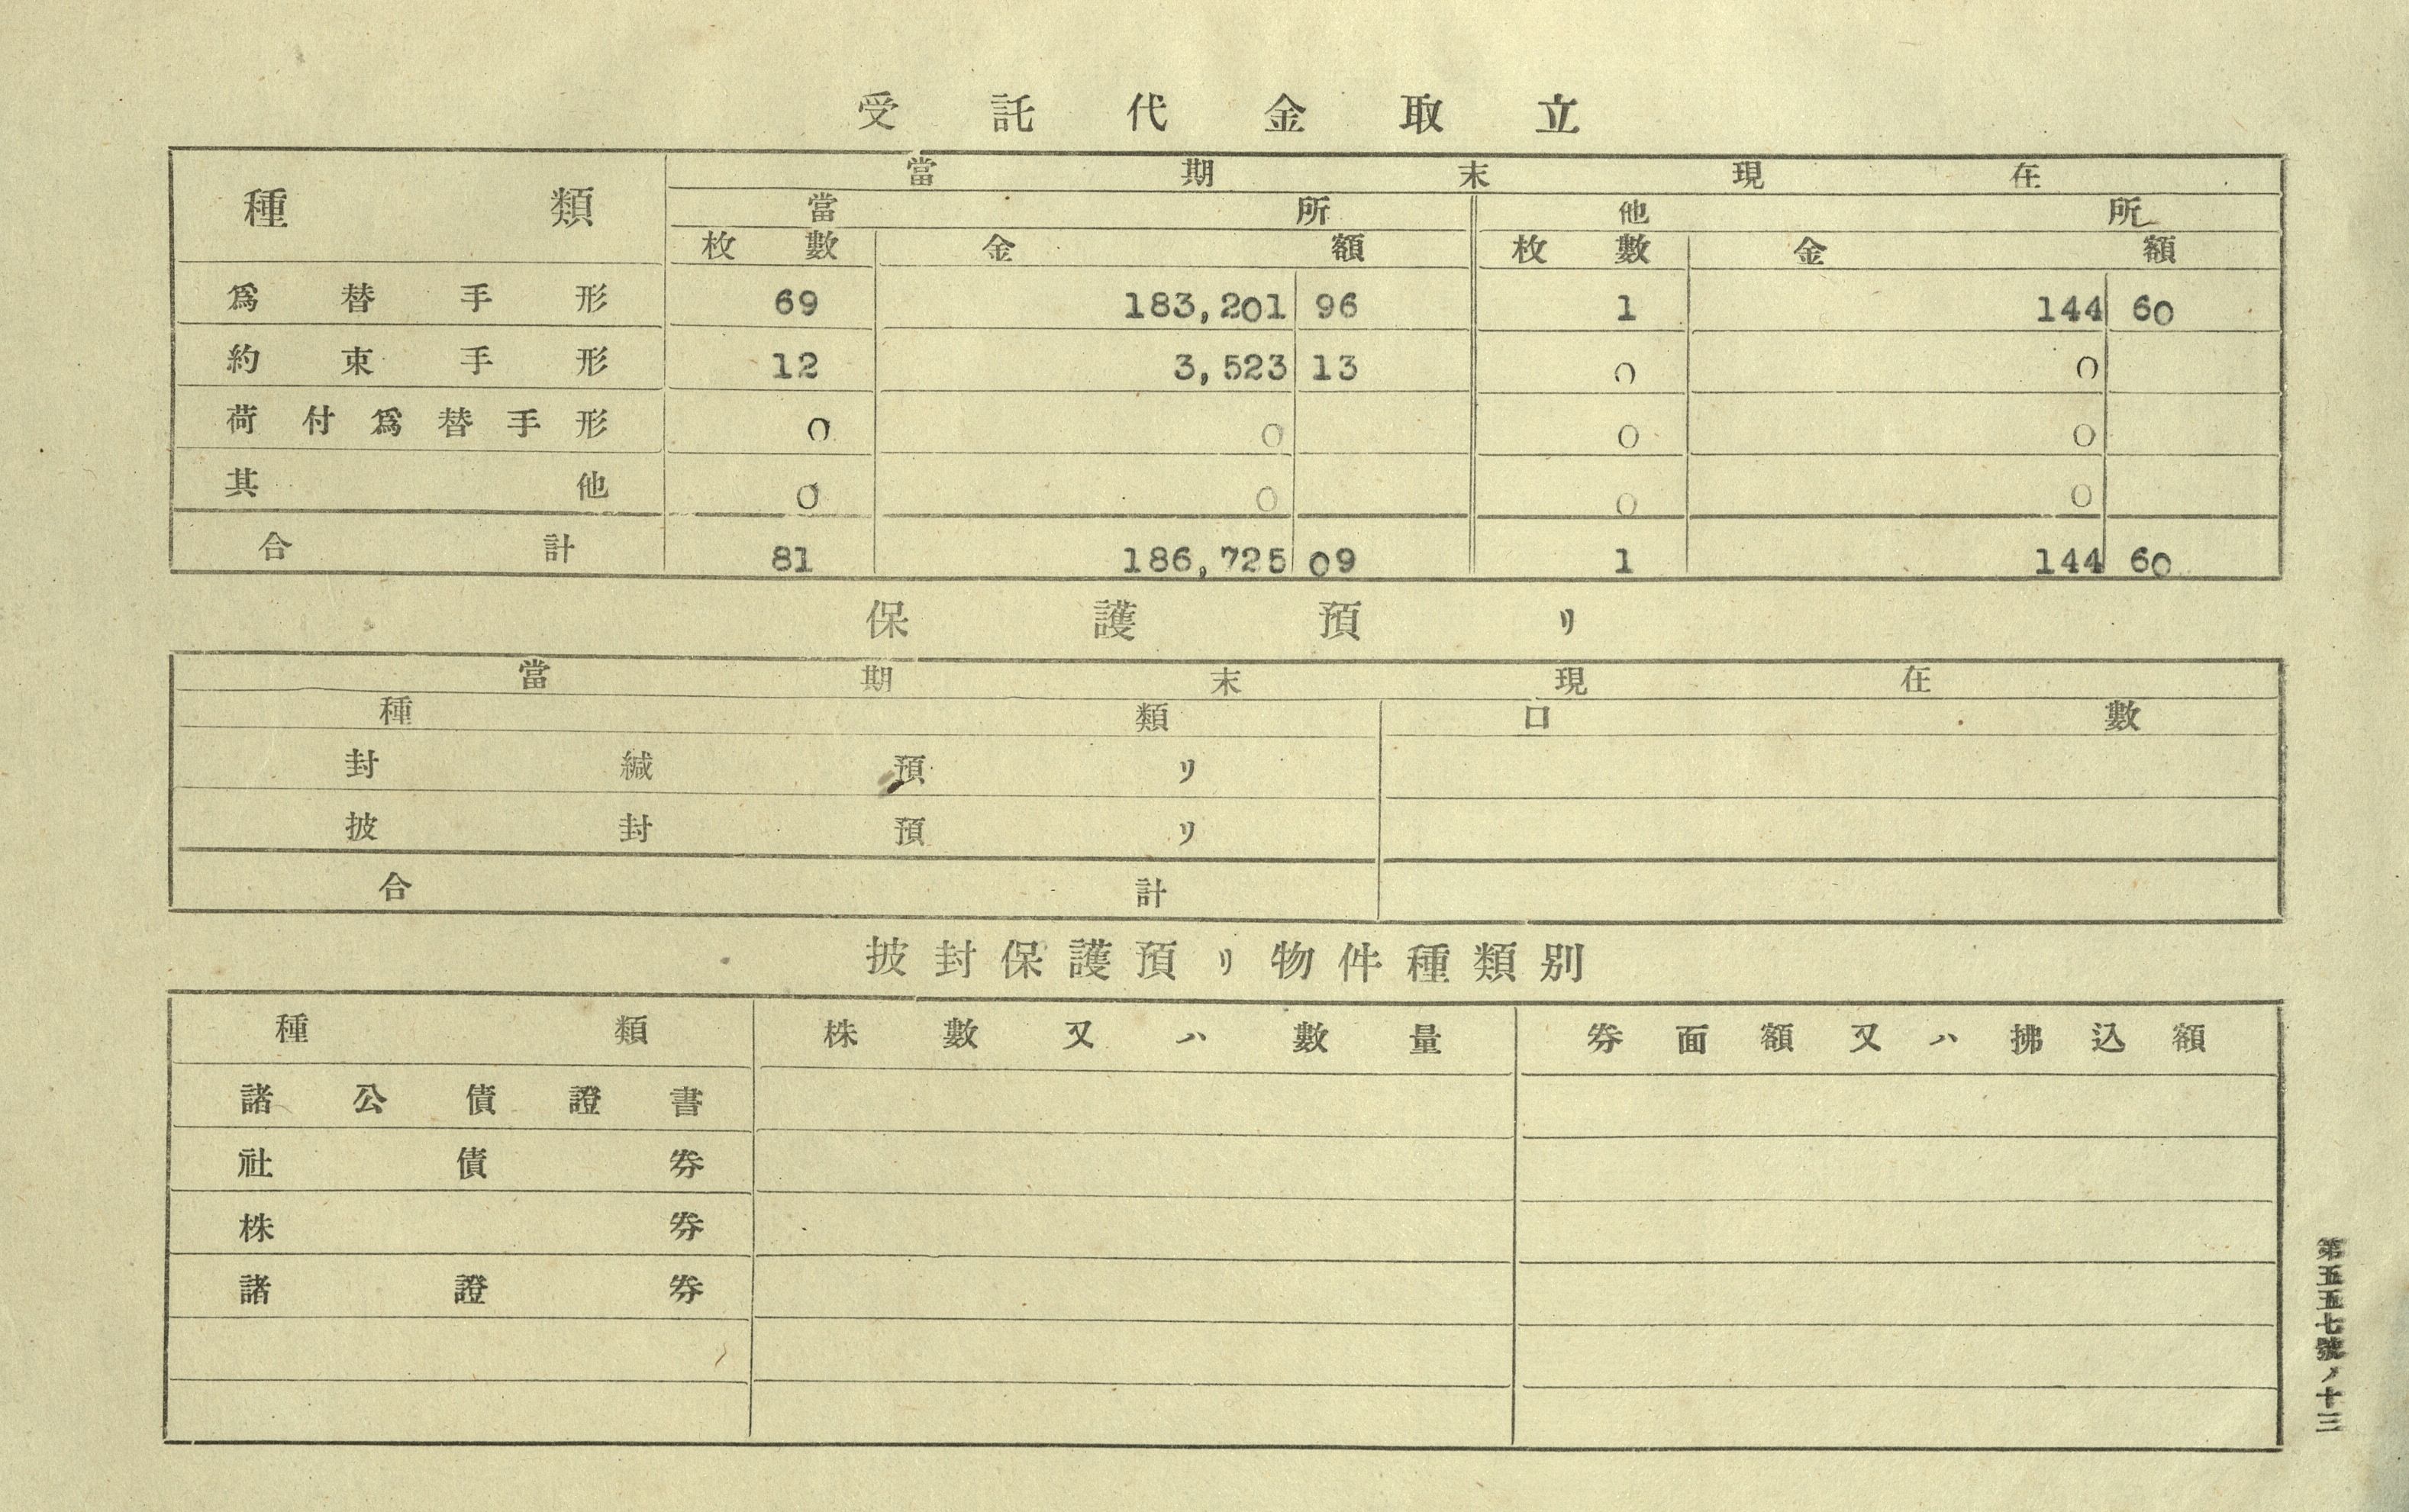 受託代金取立
種類 當期末現在
當所 他所
枚數 金額 枚數 金額
爲替手形 69 183,201 96 1 144 60
約束手形 12 3,523 13 0 0
荷付爲替手形 0 0 0 0
其他 0 0 0 0
合計 81 186,725 09 1 144 60
保護預リ
當期末現在
種類 口數
封緘預リ
披封預リ
合計
披封保護預リ物件種類別
種類 株數又ハ數量 券面額又ハ拂込額
諸公債證書
社債券
株券
諸證券
第五五七號ノ十三